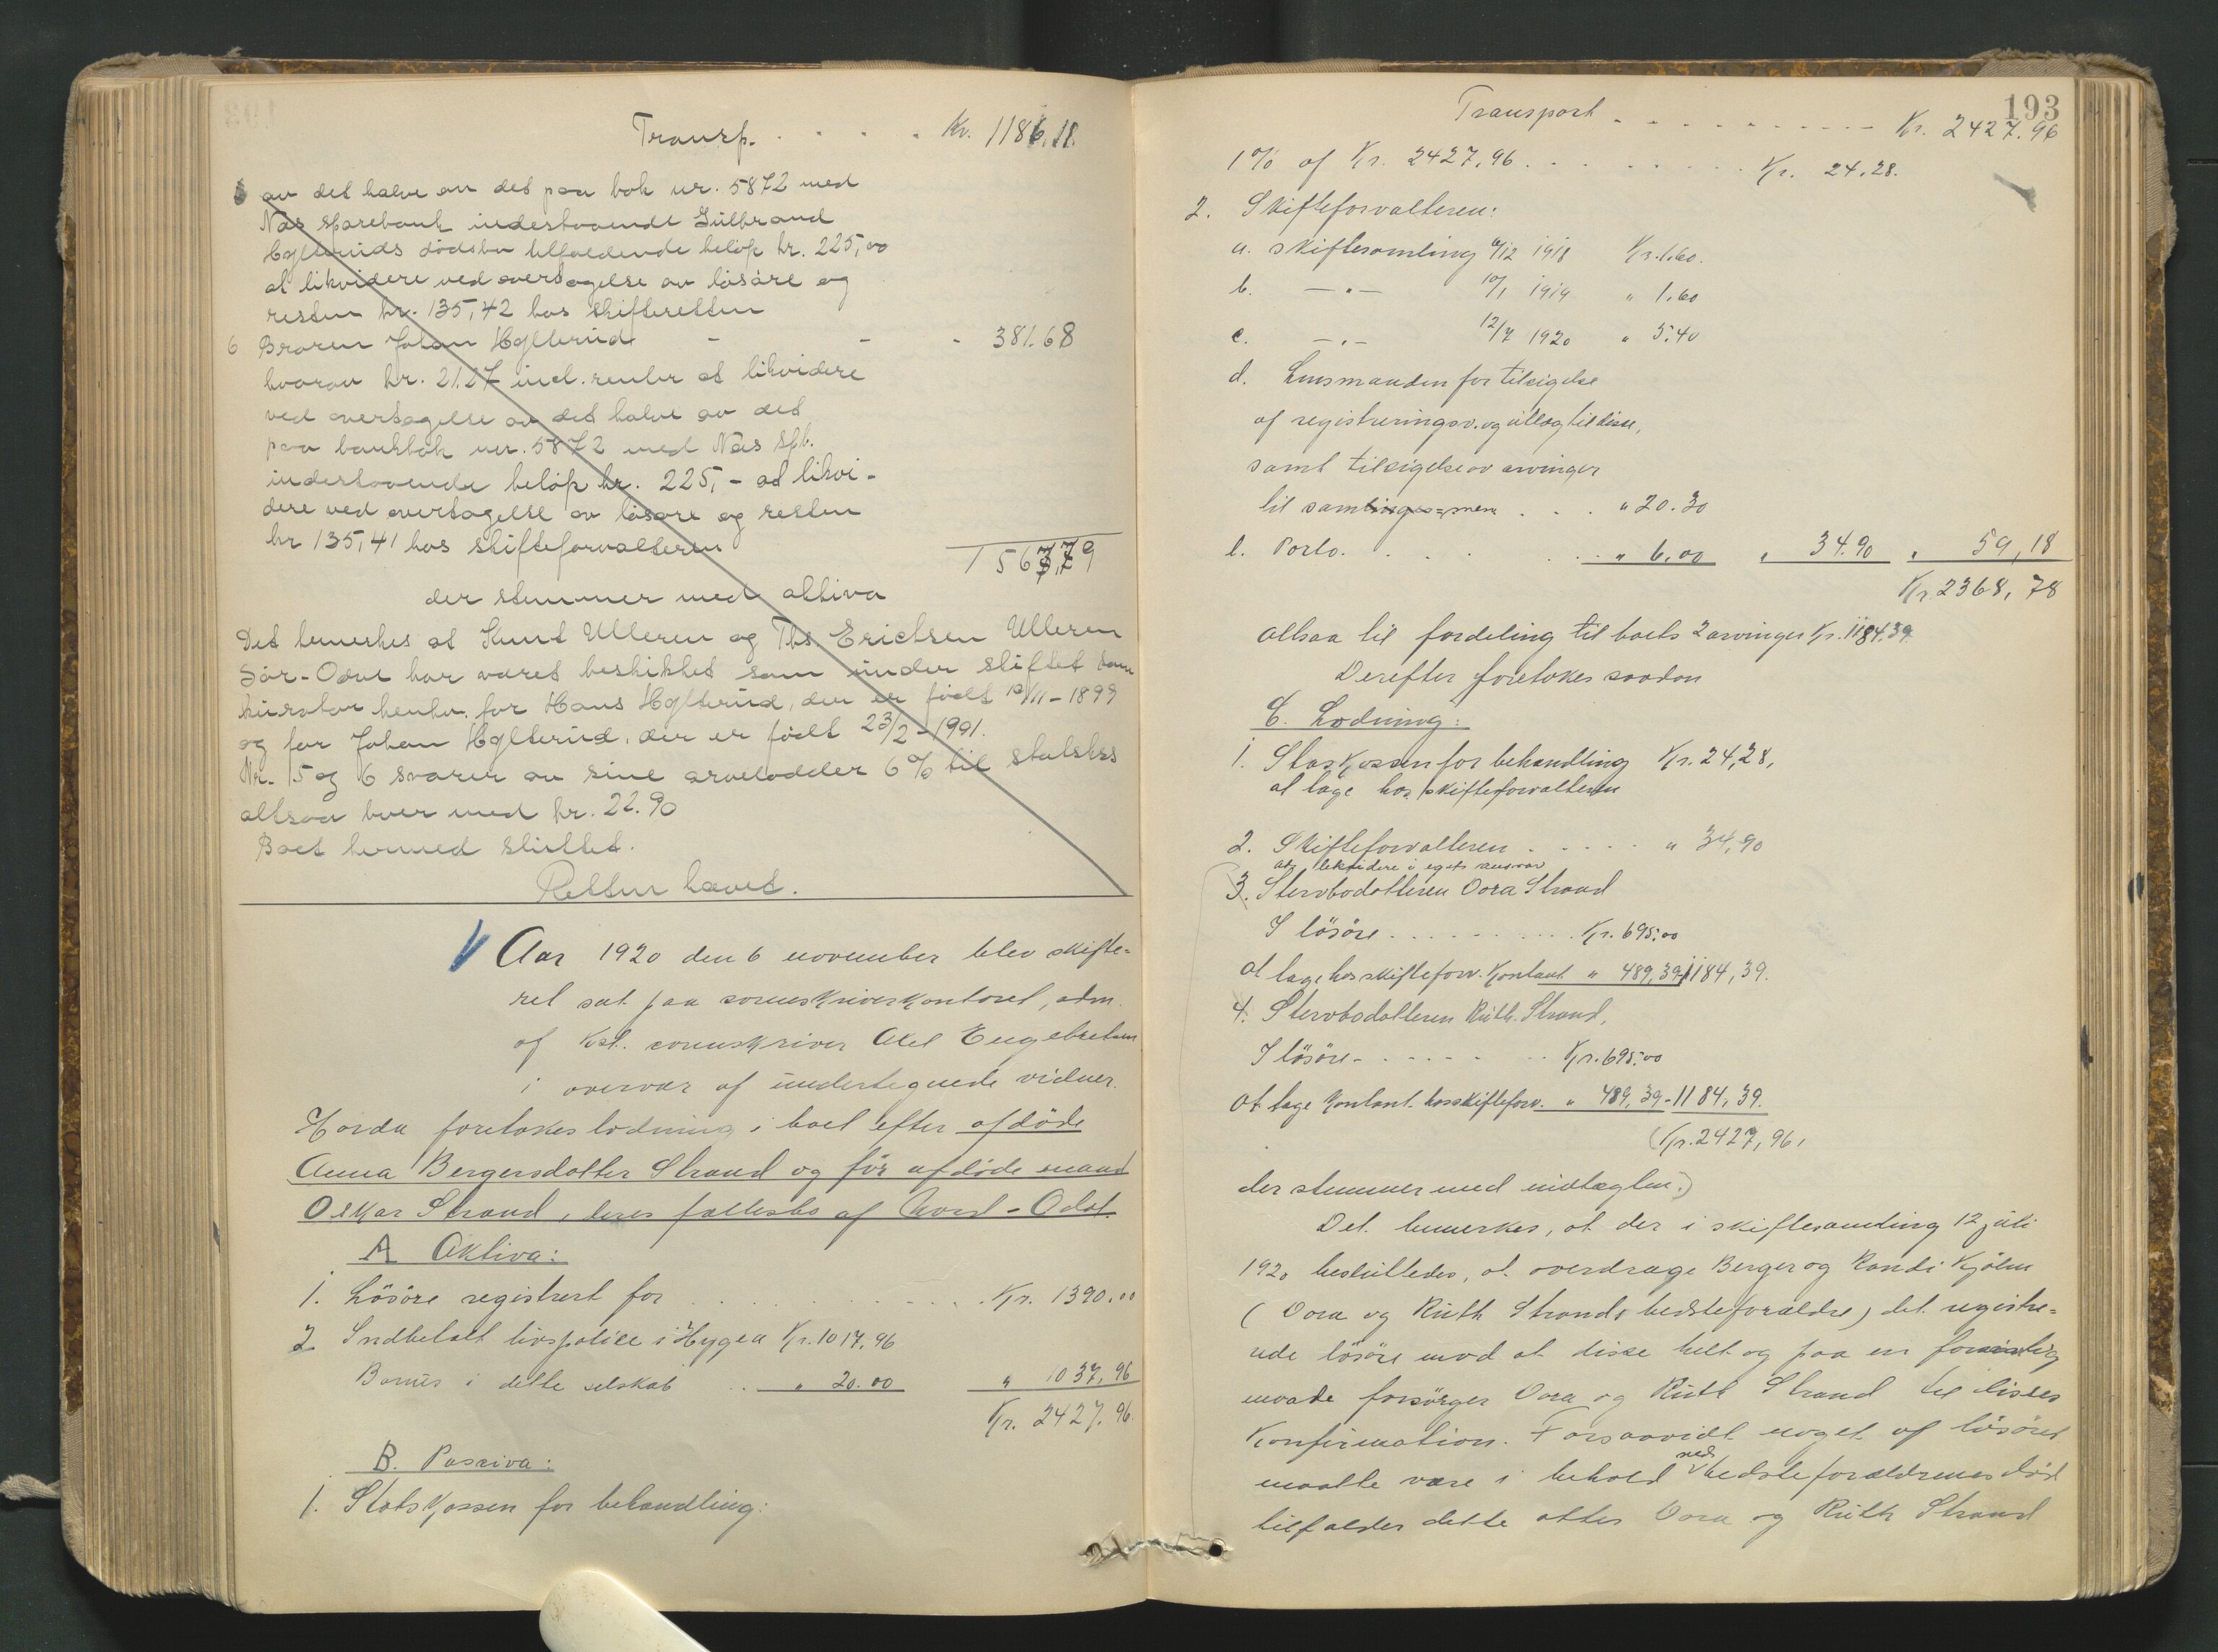 Transp. . . . . Kr. 1186.11.
av det halve av det paa bok nr. 5872 med
Næs sparebank indestaaende Gulbrand
Hylleruds dødsbo tilfaldende beløp kr. 225,00
at likvidere ved overtagelse av løsøre og
resten kr. 135,42 hos skifteretten
6 Broren Johan Hyllerud - - - 381.68
hvorav kr. 21.27 incl. renter at likvidere
ved overtagelse av det halve av det
paa bankbok nr. 5872 med Næs Spb.
indestaaende beløp kr. 225,- at likvi-
dere ved overtagelse av løsøre og resten
kr 135,41 hos skifteforvalteren
der stemmer med aktiva
Det bemerkes at Knut Ulleren og Ths. Erichsen Ulleren
Sør-Odal har været beskikket som under skiftet som
kurator henhv. for Hans Hyllerud, der er født 10/11-1899
og for Johan Hyllerud, der er født 23/2-1901.
Nr. 5 og 6 svarer av sine arvelodder 6% til statskas
altsaa hver med kr. 22.90
Boet hermed sluttet.
Retten hævet.
Aar 1920 den 6 november blev skifte-
ret sat paa sorenskriverkontoret, adm.
af kst. sorenskriver Axel Engebretsen
i overvær af undertegnede vidner.
Hvorda foretokes lodning i boet efter afdøde
Anna Bergersdatter Strand og før afdøde mand
Oskar Strand, deres fællesbo af Nord-Odal.
A Aktiva:
1. Løsøre registrert for . . . . Kr. 1390.00
2 Indbetalt livspolice i Hygea Kr. 1017,96
Bonus i dette selskab . . " 20.00 " 1037,96
Kr. 2427.96.
B. Passiva:
1. Statskassen for behandling:
193
Transport - - - - - - - - - Kr. 2427.96
1% af Kr. 2427,96. . . . . . . Kr. 24,28.
2. Skifteforvalteren:
a. skiftesamling 6/12 1918 Kr. 1.60.
b. —"— 10/1 1919 " 1.60
c. —"— 12/7 1920 " 5.40
d. Lensmanden for tilsigelse
af registreringsv. og utlæg til disse,
samt tilsigelse av arvinger
til samlingen . . . " 20.30
e. Porto. . . . . . " 6.00 " 34.90 " 59,18
Kr. 2368,78
altsaa til fordeling til boets 2 arvinger Kr. 1184.39.
Derefter foretokes saadan
C. Lodning:
1. Statskassen for behandling Kr. 24,28,
at tage hos skifteforvalteren
2. Skifteforvalteren . . . . . " 34,90
at likvidere i eget ansvar
3. Stervbodatteren Oora Strand
I løsøre . . . . . . . . . Kr. 695.00
at tage hos skifteforv. kontant " 489,39 1184,39.
4. Stervbodatteren Ruth Strand,
I løsøre - - - - - - Kr. 695.00
at tage kontant hos skifteforv. " 489,39 - 1184,39.
(Kr. 2427,96,
der stemmer med indtægten.)
Det bemerkes, at der i skiftesamling 12 juli
1920 besluttedes, at overdrage Berger og Randi Kjølen
(Oora og Ruth Strands bedsteforældre) det registre-
rede løsøre mod at disse helt og paa en forsvarlig
maade forsørger Oora og Ruth Strand til disses
Konfirmation. Forsaavidt noget af løsøret
maatte være i behold ved bedsteforældrenes død
tilfalder dette atter Oora og Ruth Strand